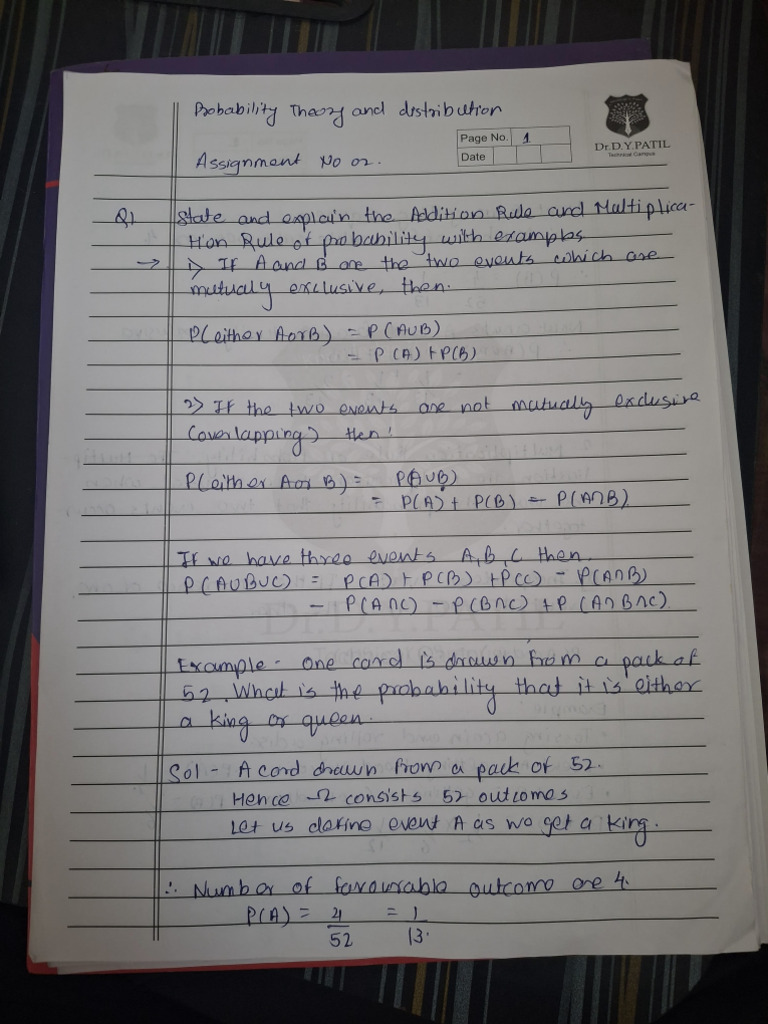 Probability Theory and distribution
Page No. 1
Dr. D. Y. PATIL
Technical Campus
Assignment No 02.
Date
Q1 State and explain the Addition Rule and Multiplica-
tion Rule of probability with examples
→ 1> If A and B are the two events which are
mutually exclusive, then.
P(either A or B) = P(A∪B)
= P(A) + P(B)
2> If the two events are not mutually exclusive
(overlapping) then:
P(either A or B) = P(A∪B)
= P(A) + P(B) – P(A∩B)
If we have three events A, B, C then.
P(A∪B∪C) = P(A) + P(B) + P(C) – P(A∩B)
– P(A∩C) – P(B∩C) + P(A∩B∩C).
Example - one card is drawn from a pack of
52. What is the probability that it is either
a king or queen.
Sol - A card drawn from a pack of 52.
Hence Ω consists 52 outcomes
Let us define event A as we get a king.
∴ Number of favourable outcome are 4.
P(A) = 4/52 = 1/13.